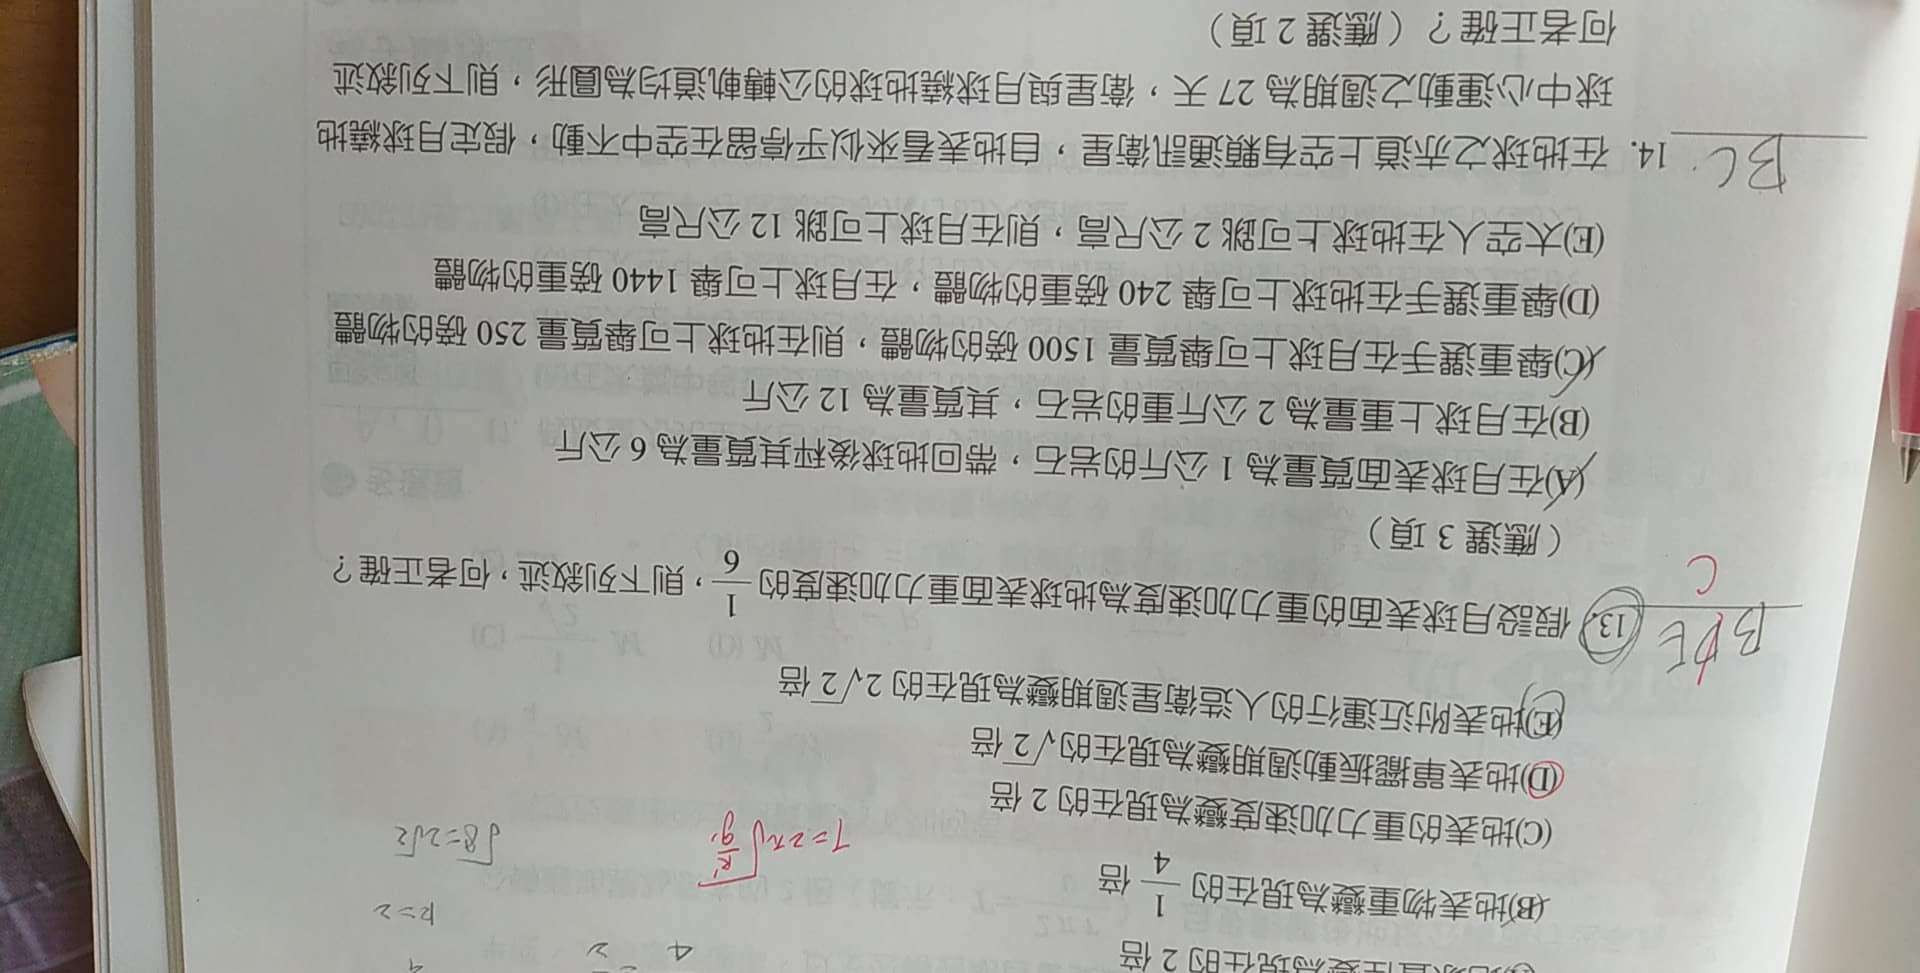 2 倍
(B)地表物重變為現在的 1/4 倍
(C)地表的重力加速度變為現在的 2 倍
(D)地表單擺振動週期變為現在的√2 倍
(E)地表附近運行的人造衛星週期變為現在的 2√2 倍
R=2
√8=2√2
T=2π√(R/g)
BDE
C
13. 假設月球表面的重力加速度為地球表面重力加速度的 1/6，則下列敘述，何者正確？
（應選 3 項）
(A)在月球表面質量為 1 公斤的岩石，帶回地球後秤其質量為 6 公斤
(B)在月球上重量為 2 公斤重的岩石，其質量為 12 公斤
(C)舉重選手在月球上可舉質量 1500 磅的物體，則在地球上可舉質量 250 磅的物體
(D)舉重選手在地球上可舉 240 磅重的物體，在月球上可舉 1440 磅重的物體
(E)太空人在地球上可跳 2 公尺高，則在月球上可跳 12 公尺高
BC
14. 在地球之赤道上空有顆通訊衛星，自地表看來似乎停留在空中不動，假定月球繞地
球中心運動之週期為 27 天，衛星與月球繞地球的公轉軌道均為圓形，則下列敘述
何者正確？（應選 2 項）